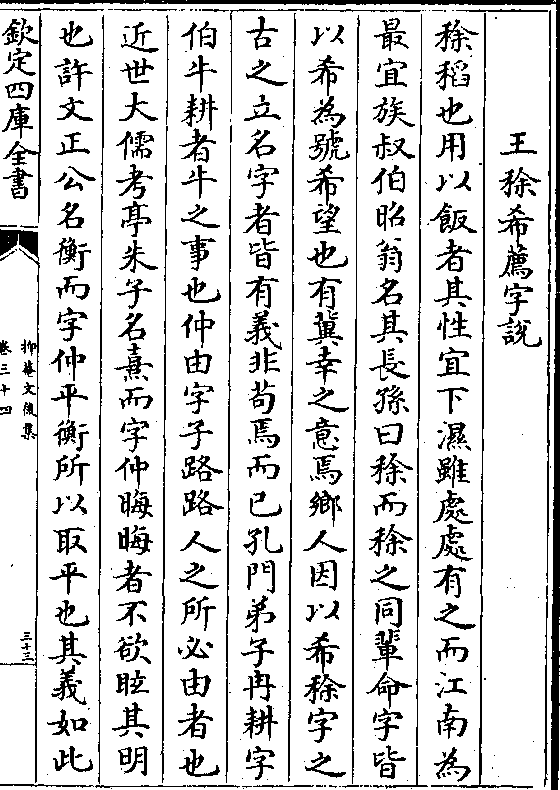 王稌希薦字說
稌稻也用以飯者其性宜下濕雖處處有之而江南為
最宜族叔伯昭翁名其長孫曰稌而稌之同輩命字皆
以希為號希望也有冀幸之意焉鄉人因以希稌字之
古之立名字者皆有義非苟焉而已孔門弟子冉耕字
伯牛耕者牛之事也仲由字子路路人之所必由者也
近世大儒考亭朱子名熹而字仲晦晦者不欲眩其明
也許文正公名衡而字仲平衡所以取平也其義如此
欽定四庫全書
抑菴文後集
卷三十四
三十三